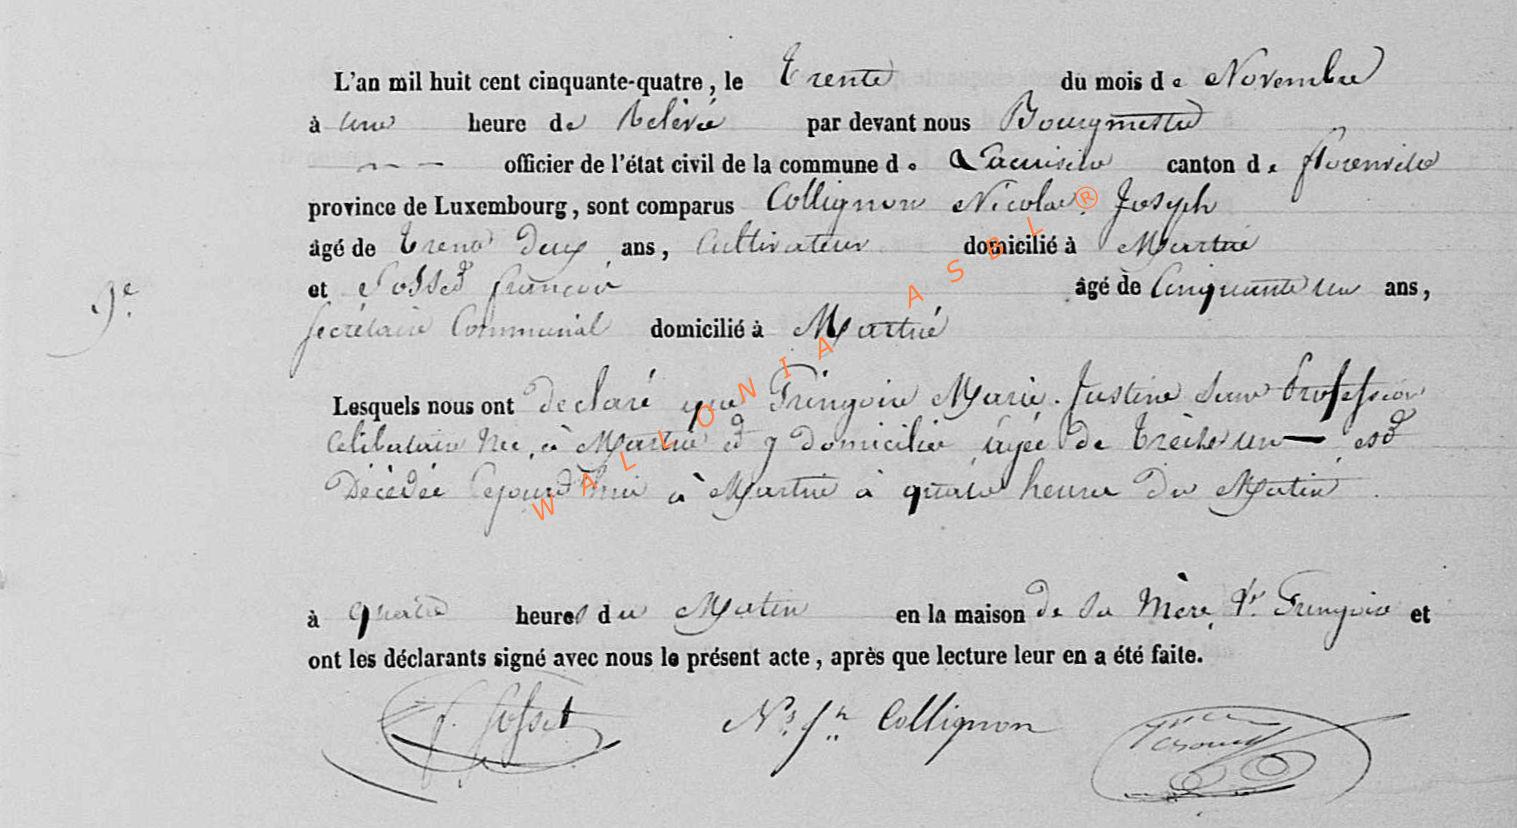 L'an mil huit cent cinquante-quatre, le trente du mois de Novembre
à une heure de Relevé par devant nous Bourgmestre
officier de l'état civil de la commune de Lacuisine canton de florenville
province de Luxembourg, sont comparus Collignon Nicolas Joseph
âgé de trente Deux ans, Cultivateur domicilié à Martué
et Gosset françois âgé de Cinquante un ans,
9e.
secrétaire Communal domicilié à Martué
Lesquels nous ont declaré que Gringoire Marie Justine Sans Profession
Celibataire Née à Martué et y domicilié âgée de treize un est
Décédée Cejourd'hui à Martué à quatre heure Du Matin
à quatre heures du Matin en la maison de Sa Mère Ve Gringoire et
ont les déclarants signé avec nous le présent acte, après que lecture leur en a été faite.
f. Gosset Ns Jh Collignon
WALLONIA ASBL ®